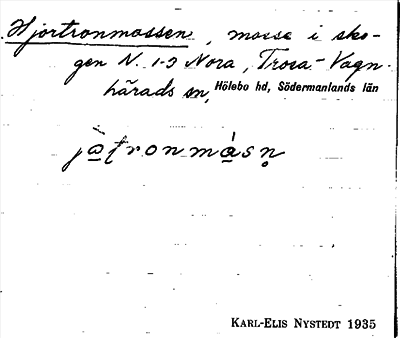 Hjortronmossen, mosse i sko-
gen N. 1-2 Nora, Trosa-Vagn-
härads sn, Hölebo hd, Södermanlands län
KARL-ELIS NYSTEDT 1935